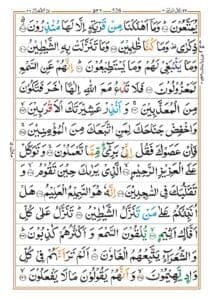 يُمَتَّعُوْنَ وَمَاۤ اَهْلَكْنَا مِنْ قَرْيَةٍ اِلَّا لَهَا مُنْذِرُوْنَ
ذِكْرٰى وَمَا كُنَّا ظٰلِمِيْنَ وَمَا تَنَزَّلَتْ بِهِ الشَّيٰطِيْنُ
وَمَا يَنْۢبَغِيْ لَهُمْ وَمَا يَسْتَطِيْعُوْنَ اِنَّهُمْ عَنِ السَّمْعِ
لَمَعْزُوْلُوْنَ فَلَا تَدْعُ مَعَ اللّٰهِ اِلٰهًا اٰخَرَ فَتَكُوْنَ
مِنَ الْمُعَذَّبِيْنَ وَاَنْذِرْ عَشِيْرَتَكَ الْاَقْرَبِيْنَ
وَاخْفِضْ جَنَاحَكَ لِمَنِ اتَّبَعَكَ مِنَ الْمُؤْمِنِيْنَ
فَاِنْ عَصَوْكَ فَقُلْ اِنِّيْ بَرِيْٓءٌ مِّمَّا تَعْمَلُوْنَ وَتَوَكَّلْ
عَلَى الْعَزِيْزِ الرَّحِيْمِ الَّذِيْ يَرٰىكَ حِيْنَ تَقُوْمُ
وَتَقَلُّبَكَ فِي السّٰجِدِيْنَ اِنَّهٗ هُوَ السَّمِيْعُ الْعَلِيْمُ هَلْ
اُنَبِّئُكُمْ عَلٰى مَنْ تَنَزَّلُ الشَّيٰطِيْنُ تَنَزَّلُ عَلٰى كُلِّ
اَفَّاكٍ اَثِيْمٍ يُّلْقُوْنَ السَّمْعَ وَاَكْثَرُهُمْ كٰذِبُوْنَ
وَالشُّعَرَآءُ يَتَّبِعُهُمُ الْغَاوٗنَ اَلَمْ تَرَ اَنَّهُمْ فِيْ كُلِّ
وَادٍ يَّهِيْمُوْنَ وَاَنَّهُمْ يَقُوْلُوْنَ مَا لَا يَفْعَلُوْنَ